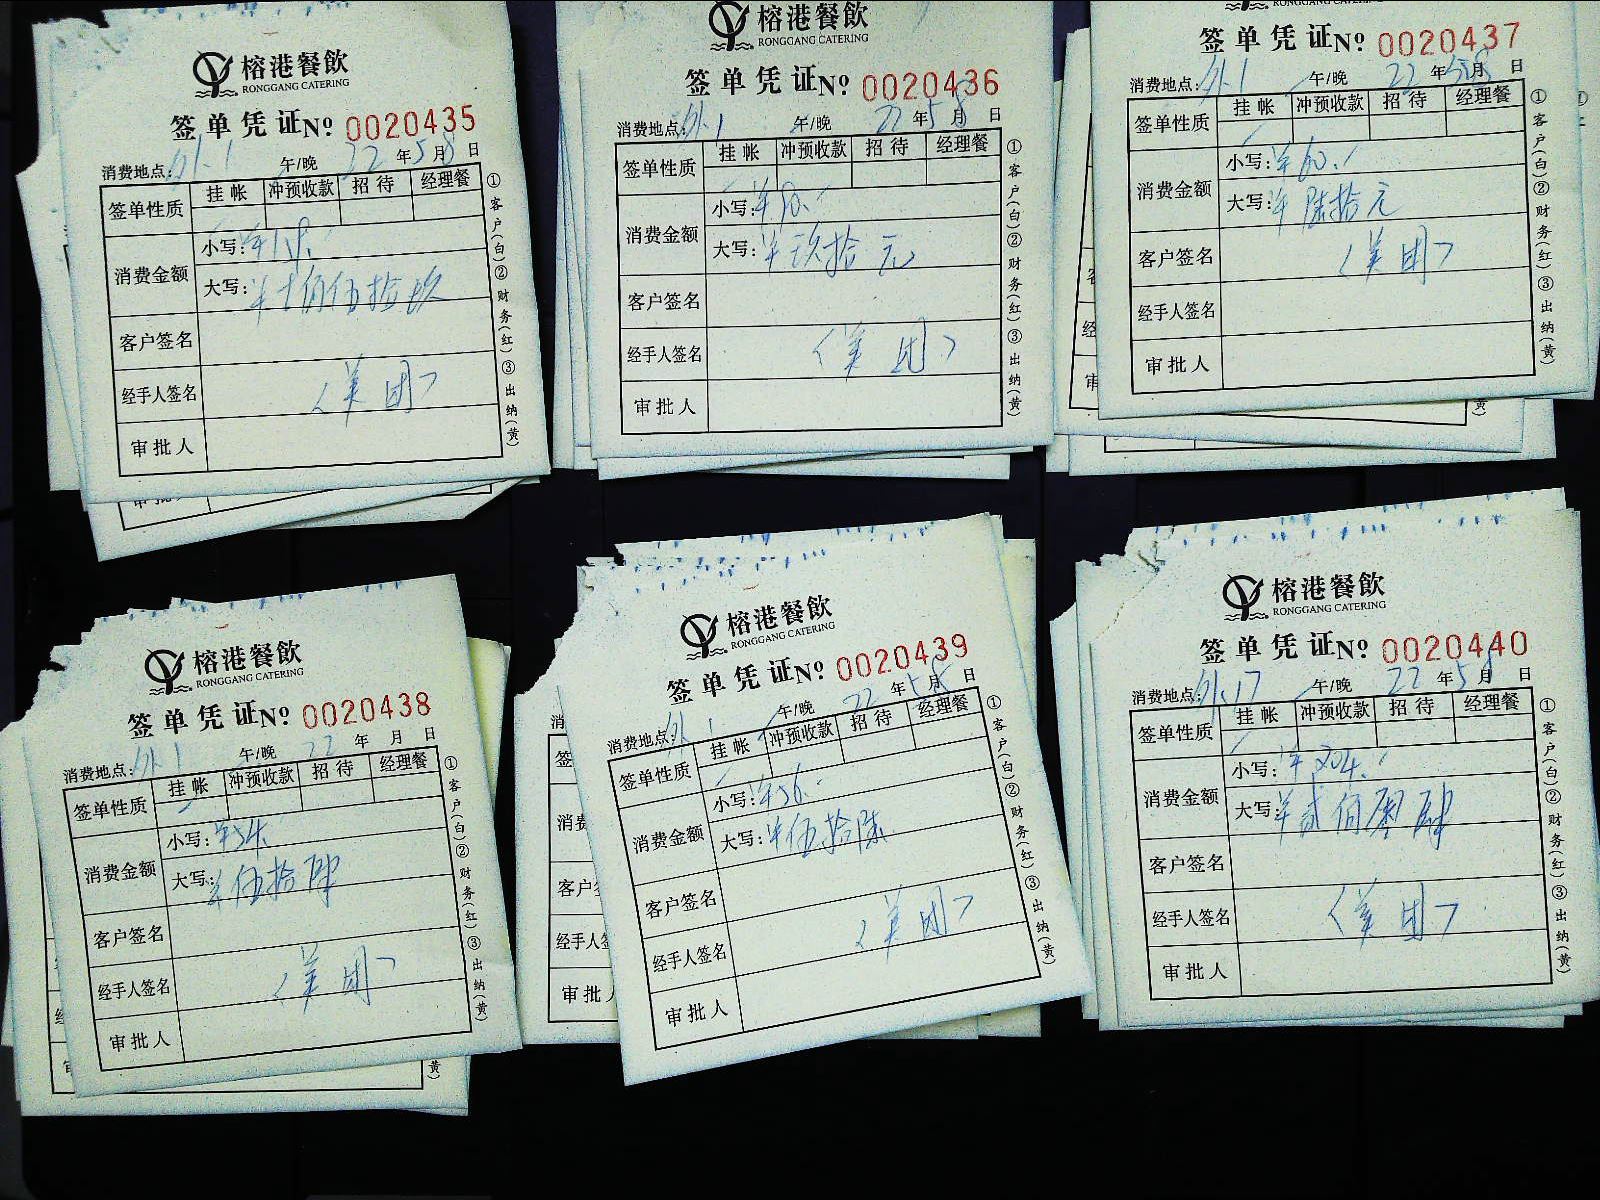 榕港餐飲
RONGGANG CATERING
签单凭证№ 0020435
消费地点：外.1 午/晚 22年5月8日
签单性质 挂帐 冲预收款 招待 经理餐
消费金额
小写：
大写：¥壹佰伍拾玖
客户签名
经手人签名 〈美团〉
审批人
①客户(白)②财务(红)③出纳(黄)
榕港餐飲
RONGGANG CATERING
签单凭证№ 0020436
消费地点：外.1 午/晚 22年5月8日
签单性质 挂帐 冲预收款 招待 经理餐
消费金额
小写：¥90.-
大写：¥玖拾元
客户签名
经手人签名 〈美团〉
审批人
①客户(白)②财务(红)③出纳(黄)
RONGGANG CATERING
签单凭证№ 0020437
消费地点：外.1 午/晚 22年5月8日
签单性质 挂帐 冲预收款 招待 经理餐
消费金额
小写：¥60.-
大写：¥陆拾元
客户签名 〈美团〉
经手人签名
审批人
①客户(白)②财务(红)③出纳(黄)
榕港餐飲
RONGGANG CATERING
签单凭证№ 0020438
消费地点：外.1 午/晚 22年 月 日
签单性质 挂帐 冲预收款 招待 经理餐
消费金额
小写：¥54.
大写：¥伍拾肆
客户签名
经手人签名 〈美团〉
审批人
①客户(白)②财务(红)③出纳(黄)
榕港餐飲
RONGGANG CATERING
签单凭证№ 0020439
消费地点：外.1 午/晚 22年5月8日
签单性质 挂帐 冲预收款 招待 经理餐
消费金额
小写：¥56.-
大写：¥伍拾陆
客户签名
经手人签名 〈美团〉
审批人
①客户(白)②财务(红)③出纳(黄)
榕港餐飲
RONGGANG CATERING
签单凭证№ 0020440
消费地点：外.17 午/晚 22年5月8日
签单性质 挂帐 冲预收款 招待 经理餐
消费金额
小写：¥204.-
大写：¥贰佰零肆
客户签名
经手人签名 〈美团〉
审批人
①客户(白)②财务(红)③出纳(黄)